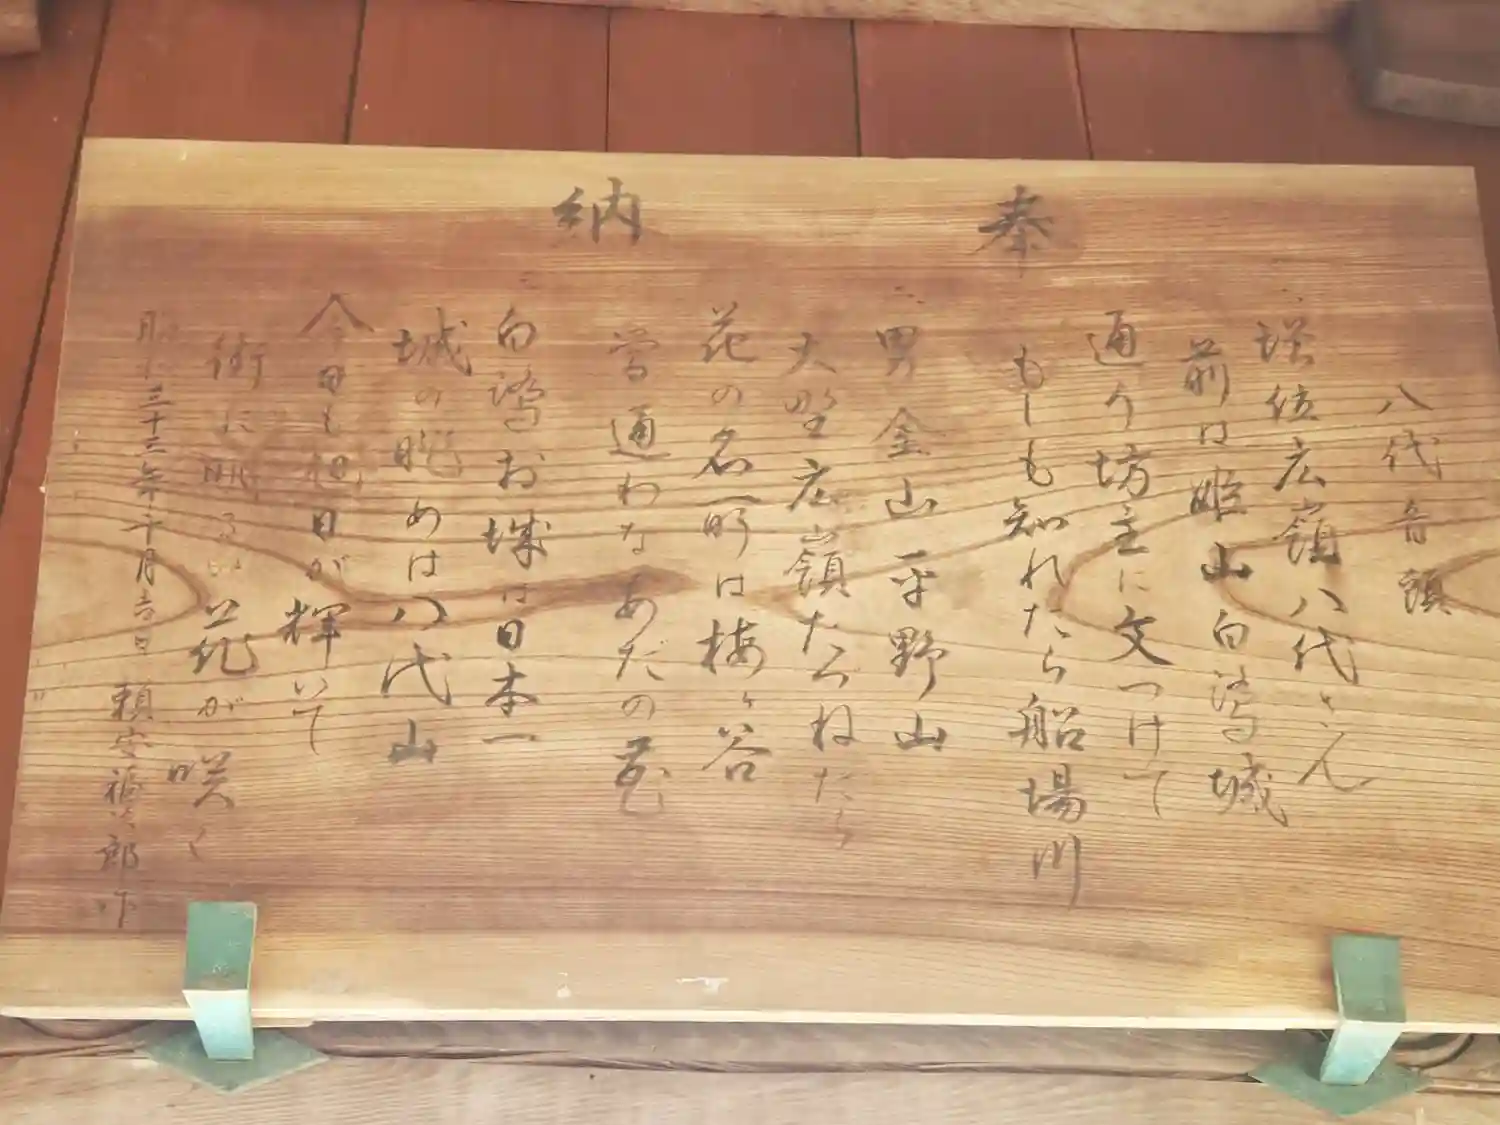 奉納
八代音頭
増位広嶺八代さん
前は姫山白鷺城
通う坊主に文つけて
もしも知れたら船場川
男金山平野山
大野広嶺たづねたら
花の名所は梅ヶ谷
鶯通わなあだの花
白鷺お城は日本一
城の眺めは八代山
今日も旭日が輝いて
街に明るい花が咲く
昭和三十三年十月吉日 頼安福次郎作